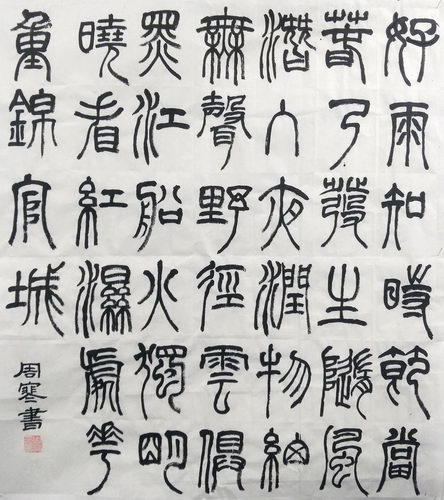 好雨知時節當
春乃發生隨風
潛入夜潤物細
無聲野徑雲俱
黑江船火獨明
曉看紅濕處花
重錦官城
周寒書